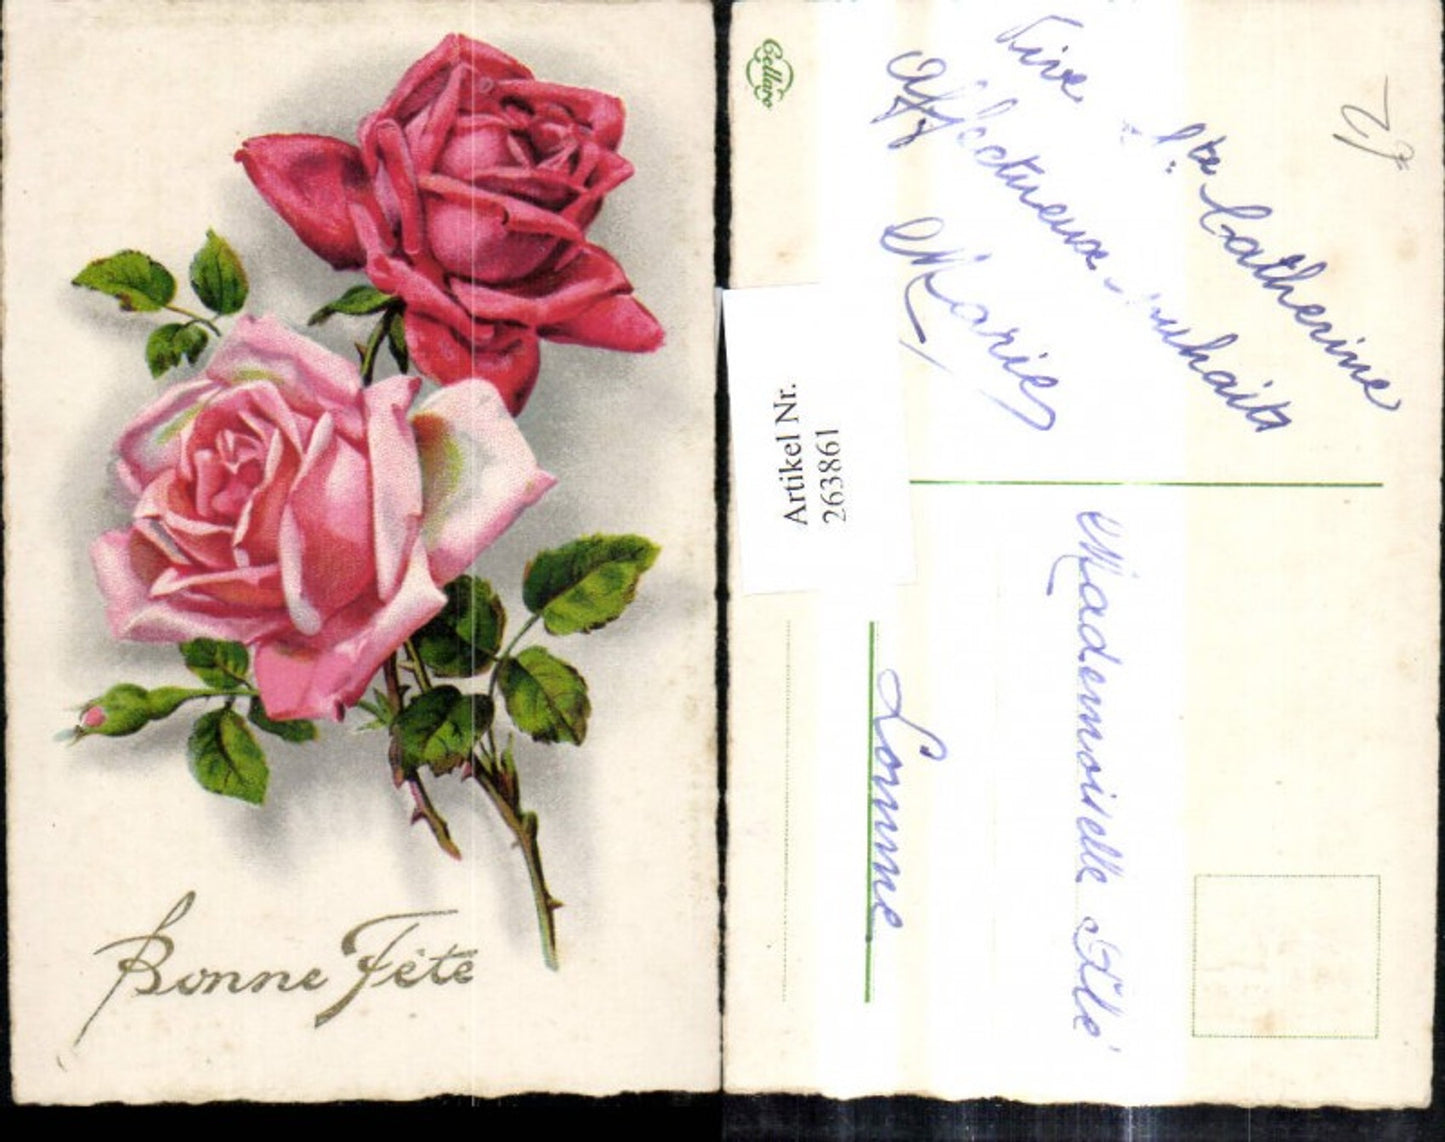 Bonne Fête
Cellaro
Vive Ste Catherine
Affectueux souhaits
Marie
Artikel Nr.
263861
Mademoiselle
Lomme